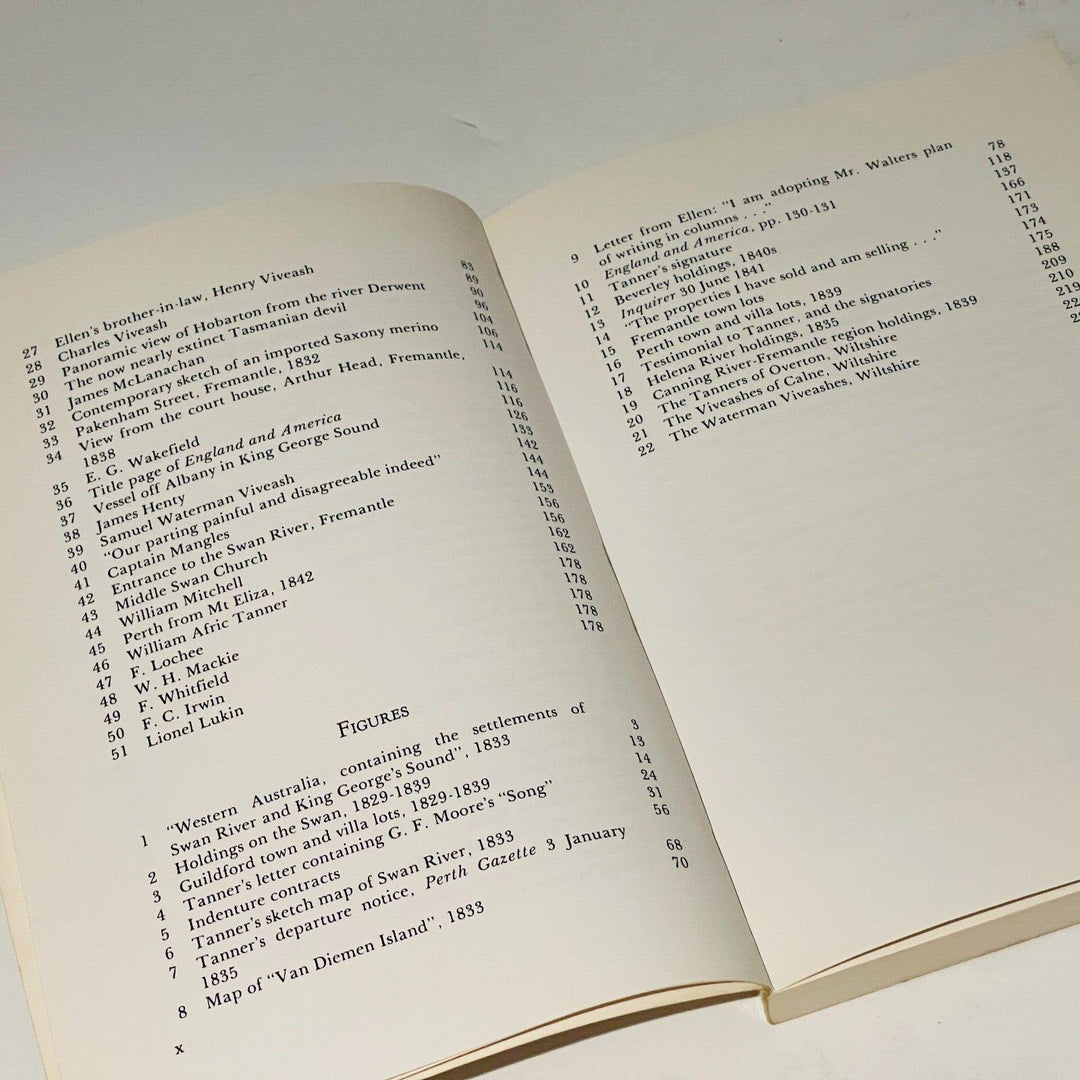 27 Ellen's brother-in-law, Henry Viveash 83
28 Charles Viveash 89
29 Panoramic view of Hobarton from the river Derwent 90
30 The now nearly extinct Tasmanian devil 96
31 James McLanachan 104
32 Contemporary sketch of an imported Saxony merino 106
33 Pakenham Street, Fremantle, 1832 114
34 View from the court house, Arthur Head, Fremantle,
1838 114
35 E. G. Wakefield 116
36 Title page of England and America 116
37 Vessel off Albany in King George Sound 126
38 James Henty 133
39 Samuel Waterman Viveash 142
40 "Our parting painful and disagreeable indeed" 144
41 Captain Mangles 144
42 Entrance to the Swan River, Fremantle 153
43 Middle Swan Church 156
44 William Mitchell 156
45 Perth from Mt Eliza, 1842 162
46 William Afric Tanner 162
47 F. Lochee 178
48 W. H. Mackie 178
49 F. Whitfield 178
50 F. C. Irwin 178
51 Lionel Lukin 178
FIGURES
1 "Western Australia, containing the settlements of
Swan River and King George's Sound", 1833 3
2 Holdings on the Swan, 1829-1839 13
3 Guildford town and villa lots, 1829-1839 14
4 Tanner's letter containing G. F. Moore's "Song" 24
5 Indenture contracts 31
6 Tanner's sketch map of Swan River, 1833 56
7 Tanner's departure notice, Perth Gazette 3 January
1835 68
8 Map of "Van Diemen Island", 1833 70
x
9 Letter from Ellen: "I am adopting Mr. Walters plan
of writing in columns . . ." 78
10 England and America, pp. 130-131 118
11 Tanner's signature 137
12 Beverley holdings, 1840s 166
13 Inquirer 30 June 1841 171
14 "The properties I have sold and am selling . . ." 173
15 Fremantle town lots 174
16 Perth town and villa lots, 1839 175
17 Testimonial to Tanner, and the signatories 188
18 Helena River holdings, 1835 209
19 Canning River-Fremantle region holdings, 1839 210
20 The Tanners of Overton, Wiltshire 219
21 The Viveashes of Calne, Wiltshire
22 The Waterman Viveashes, Wiltshire